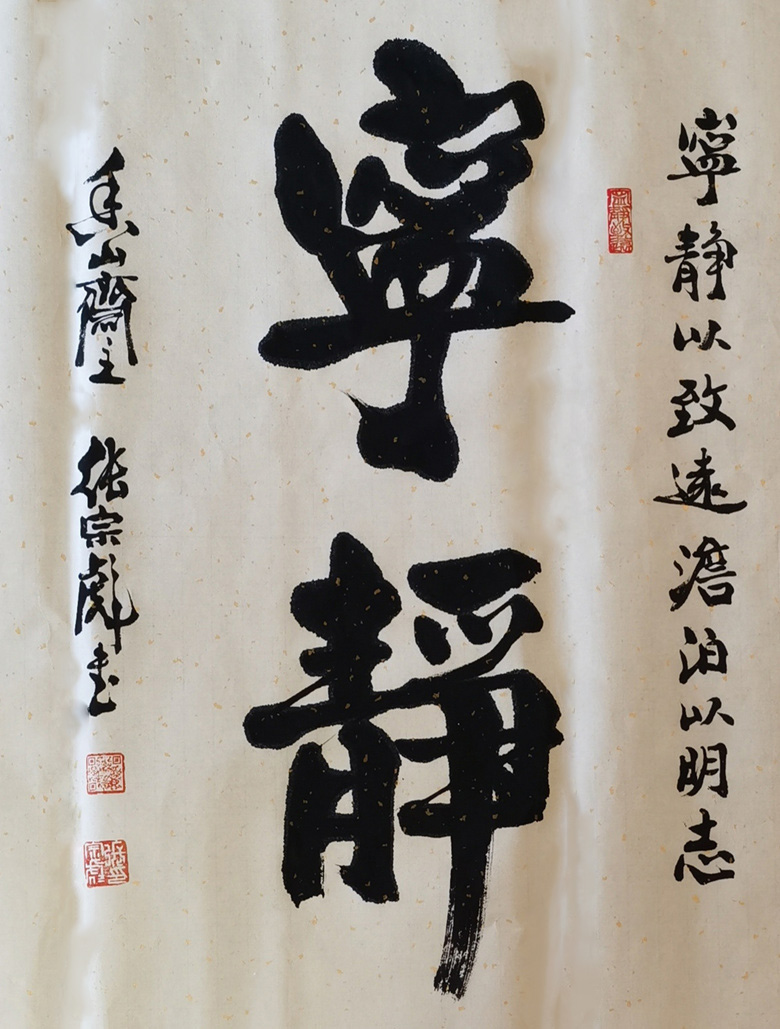 寧静以致遠澹泊以明志
寧靜
香山齋主 张宗彪書